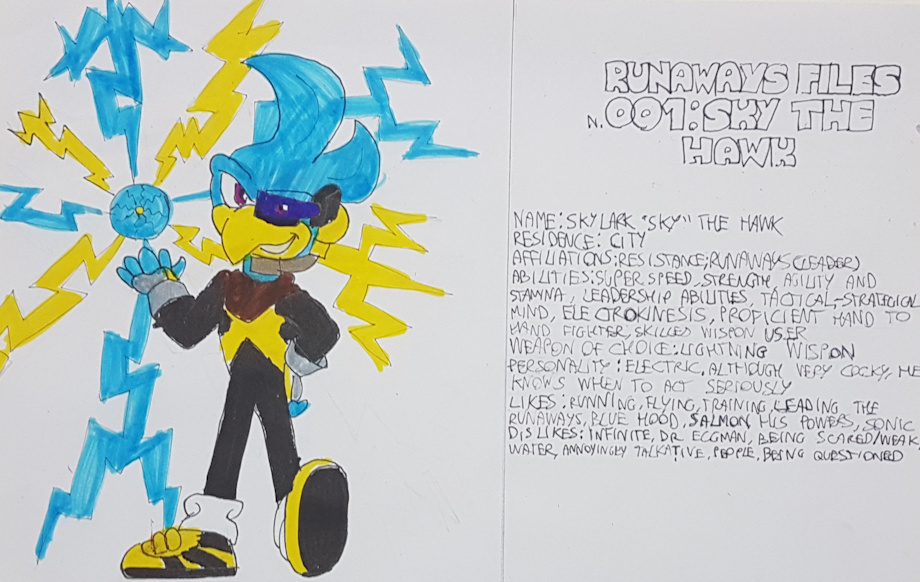 RUNAWAYS FILES
N.001:SKY THE
HAWK
NAME: SKYLARK "SKY" THE HAWK
RESIDENCE: CITY
AFFILIATIONS:RESISTANCE;RUNAWAYS(LEADER)
ABILITIES:SUPER SPEED, STRENGTH, AGILITY AND
STAMINA, LEADERSHIP ABILITIES, TACTICAL-STRATEGICAL
MIND, ELECTROKINESIS, PROFICIENT HAND TO
HAND FIGHTER, SKILLED WISPON USER
WEAPON OF CHOICE:LIGHTNING WISPON
PERSONALITY: ELECTRIC, ALTHOUGH VERY COCKY, HE
KNOWS WHEN TO ACT SERIOUSLY
LIKES: RUNNING, FLYING, TRAINING, LEADING THE
RUNAWAYS, BLUE MOOD, SALMON HIS POWERS, SONIC
DISLIKES: INFINITE, DR EGGMAN, BEING SCARED/WEAK,
WATER, ANNOYINGLY TALKATIVE, PEOPLE, BEING QUESTIONED